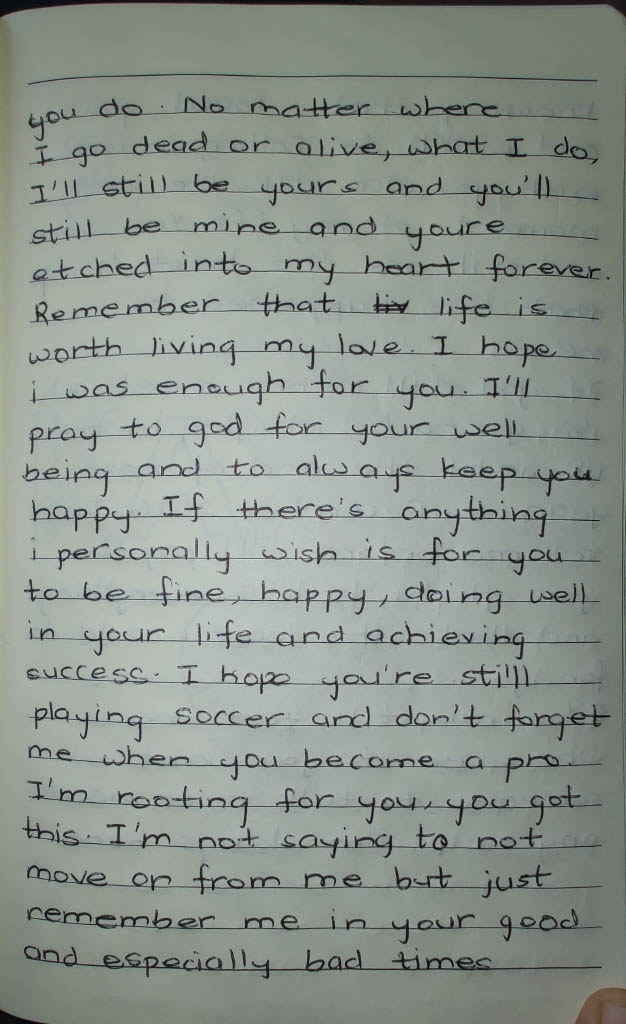 you do. No matter where
I go dead or alive, what I do,
I'll still be yours and you'll
still be mine and youre
etched into my heart forever.
Remember that liv life is
worth living my love. I hope
i was enough for you. I'll
pray to god for your well
being and to always keep you
happy. If there's anything
i personally wish is for you
to be fine, happy, doing well
in your life and achieving
success. I hope you're still
playing soccer and don't forget
me when you become a pro.
I'm rooting for you, you got
this. I'm not saying to not
move on from me but just
remember me in your good
and especially bad times